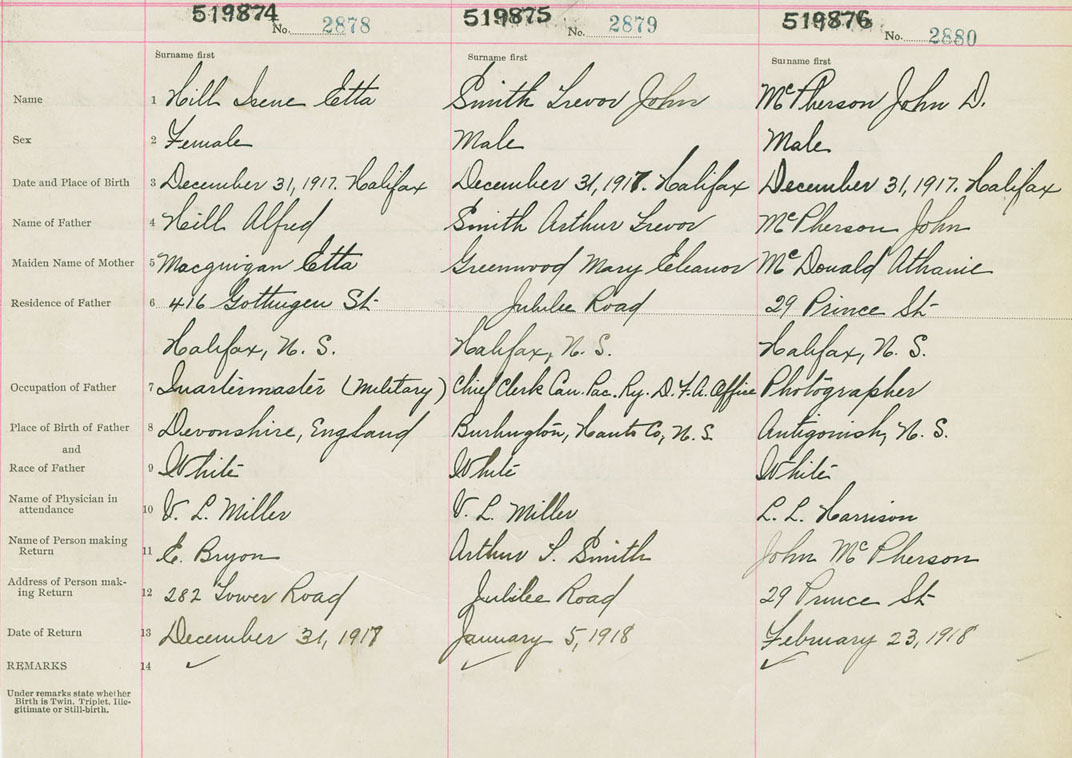 519874 519875 519876
No. 2878 No. 2879 No. 2880
Surname first Surname first Surname first
Name 1 Hill Irene Etta Smith Trevor John McPherson John D.
Sex 2 Female Male Male
Date and Place of Birth 3 December 31, 1917. Halifax December 31, 1917. Halifax December 31, 1917. Halifax
Name of Father 4 Hill Alfred Smith Arthur Trevor McPherson John
Maiden Name of Mother 5 Macguigan Etta Greenwood Mary Eleanor McDonald Athanie
Residence of Father 6 416 Gottingen St. Jubilee Road 29 Prince St.
Halifax, N. S. Halifax, N. S. Halifax, N. S.
Occupation of Father 7 Quartermaster (Military) Chief Clerk Can. Pac. Ry. D. F. A. Office Photographer
Place of Birth of Father 8 Devonshire, England Burlington, Hants Co, N. S. Antigonish, N. S.
and
Race of Father 9 White White White
Name of Physician in
attendance 10 V. L. Miller V. L. Miller L. L. Harrison
Name of Person making
Return 11 E. Bryon Arthur T. Smith John McPherson
Address of Person mak-
ing Return 12 282 Tower Road Jubilee Road 29 Prince St
Date of Return 13 December 31, 1917 January 5, 1918 February 23, 1918
REMARKS 14
Under remarks state whether
Birth is Twin, Triplet, Ille-
gitimate or Still-birth.